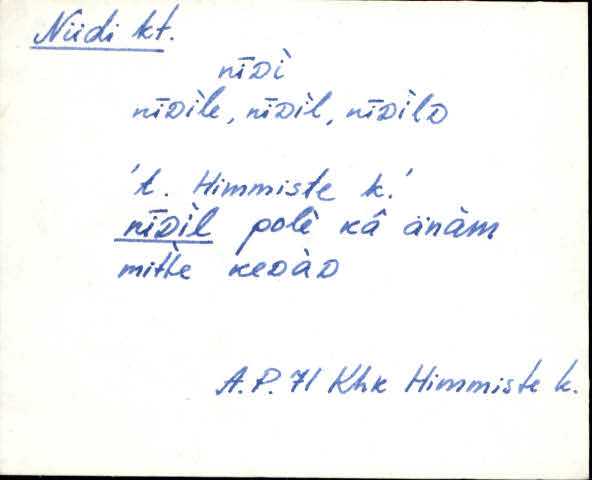 Niidi kt.
nīᴅì
nīᴅìle, nīᴅìl, nīᴅìlᴅ
't. Himmiste k.'
nīᴅìl polè kâ änàm
mittè keᴅàᴅ
A.P. 71 Khk Himmiste k.